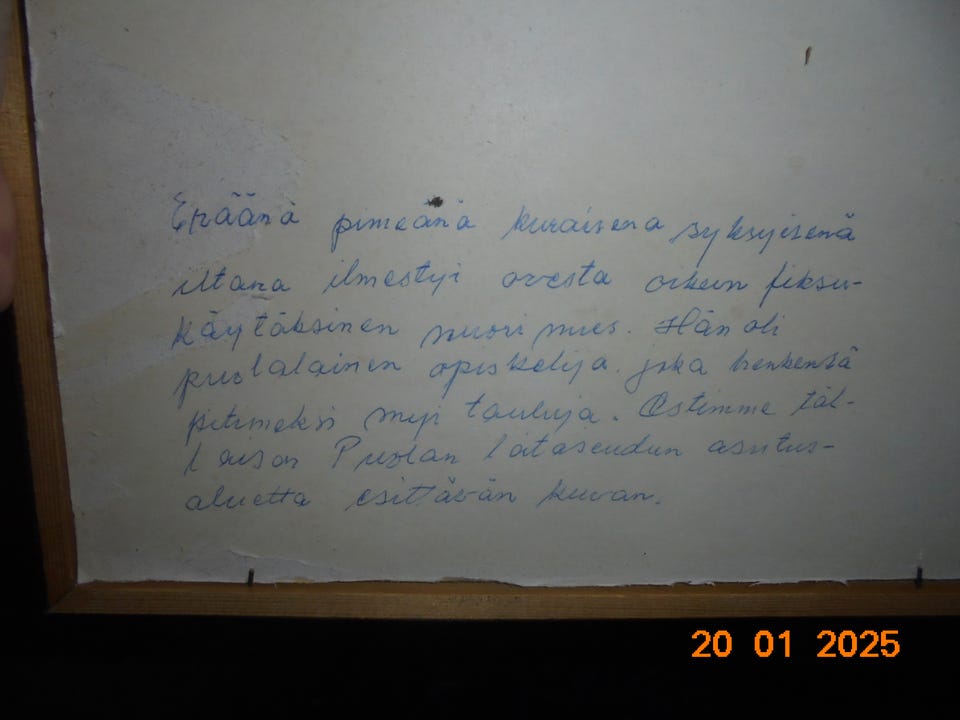 Eräänä pimeänä kuraisena syksyisenä
iltana ilmestyi ovesta oikein fiksu-
käytöksinen nuori mies. Hän oli
puolalainen opiskelija, joka henkensä
pitimeksi myi tauluja. Ostimme täl-
laisen Puolan lataseudun asutus-
aluetta esittävän kuvan.
20 01 2025